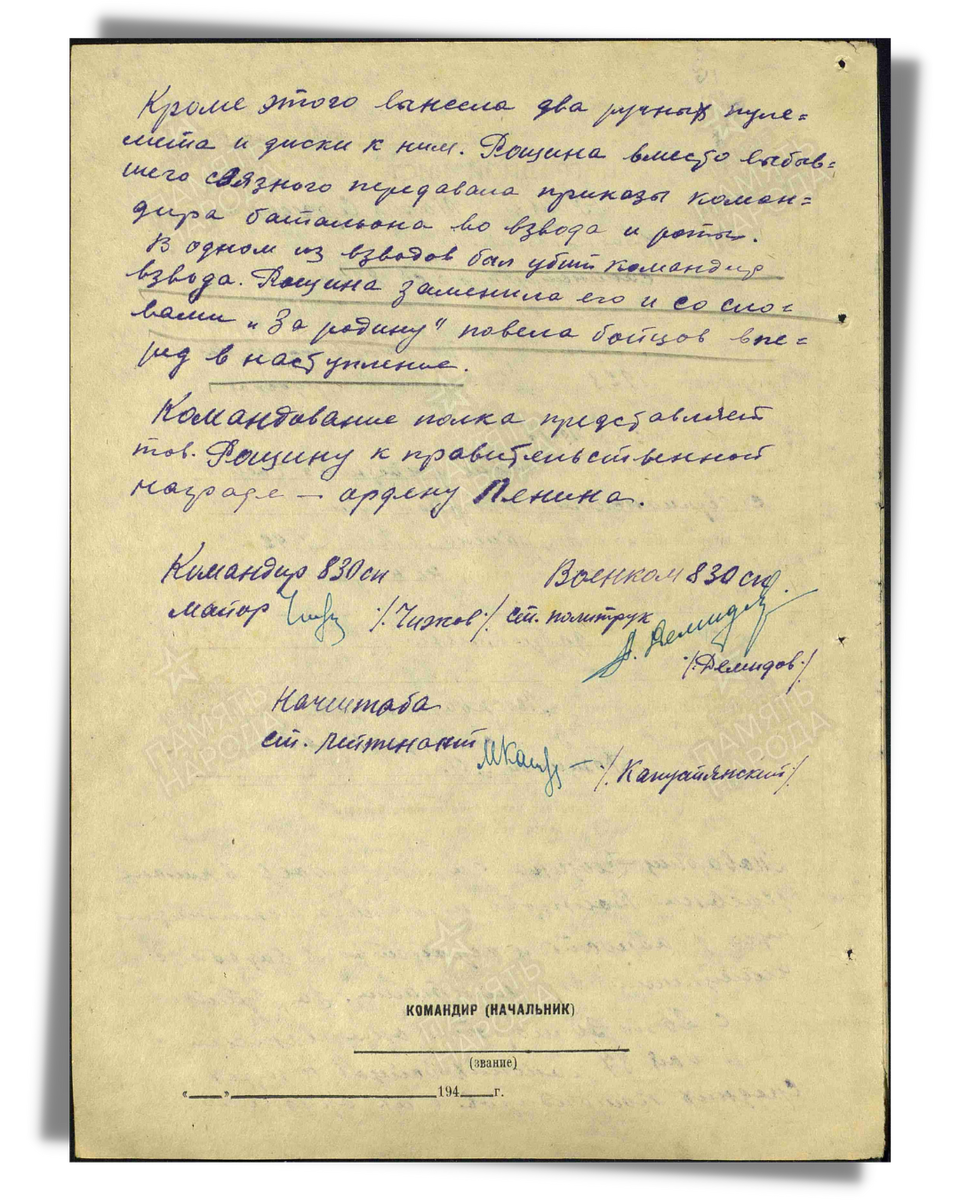 Кроме этого вынесла два ручных пуле=
мета и диски к ним. Рощина вместо выбыв=
шего связного передавала приказы коман=
дира батальона во взвода и роты.
В одном из взводов был убит командир
взвода. Рощина заменила его и со сло=
вами „За родину" повела бойцов впе=
ред в наступление.
Командование полка представляет
тов. Рощину к правительственной
награде — ордену Ленина.
Командир 830сп
Военком 830сп
майор /Чижов/
ст. политрук
Демидов
/Демидов/
Начштаба
ст. лейтенант
КОМАНДИР (НАЧАЛЬНИК)
(звание)
«___»____________194___г.
ПАМЯТЬ
НАРОДА